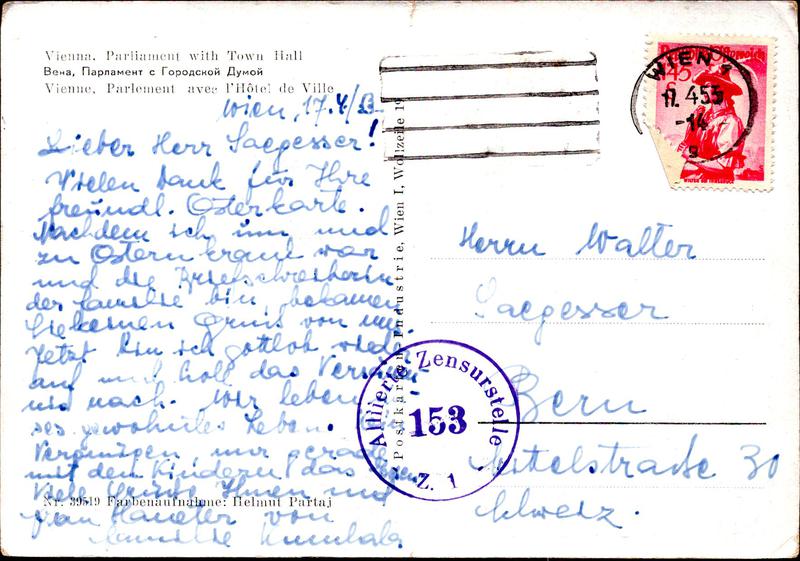 Vienna. Parliament with Town Hall
Вена, Парламент с Городской Думой
Vienne, Parlement avec l'Hôtel de Ville
Wien, 17.4/53
Lieber Herr Saegesser!
Vielen Dank für Ihre
freundl. Osterkarte.
Nachdem ich um und
zu Ostern krank war
und die Briefschreiberin
der Familie bin, bekamen
Sie keinen Gruß von uns.
Jetzt bin ich gottlob wieder
auf und holl das
nis nach. Wir leben
gewohntes Leben.
Vergnügen, nur gerade
mit den Kindern das
Viele Grüße Ihnen und
von
Familie
Nr. 39519 Farbenaufnahme: Helmut Partaj
Postkarten-Industrie, Wien I, Wollzeile
WIEN 1
17. 4 53
-14
g
45
Alliierte Zensurstelle
153
Z. 1
Herrn Walter
Saegesser
Bern
Mittelstraße 30
Schweiz.